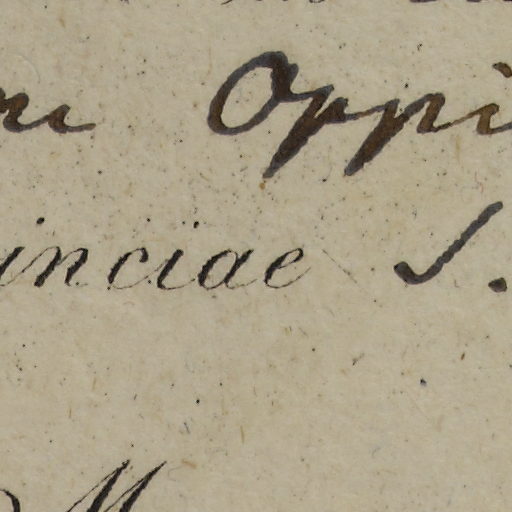 Oppi
inciae S.
M